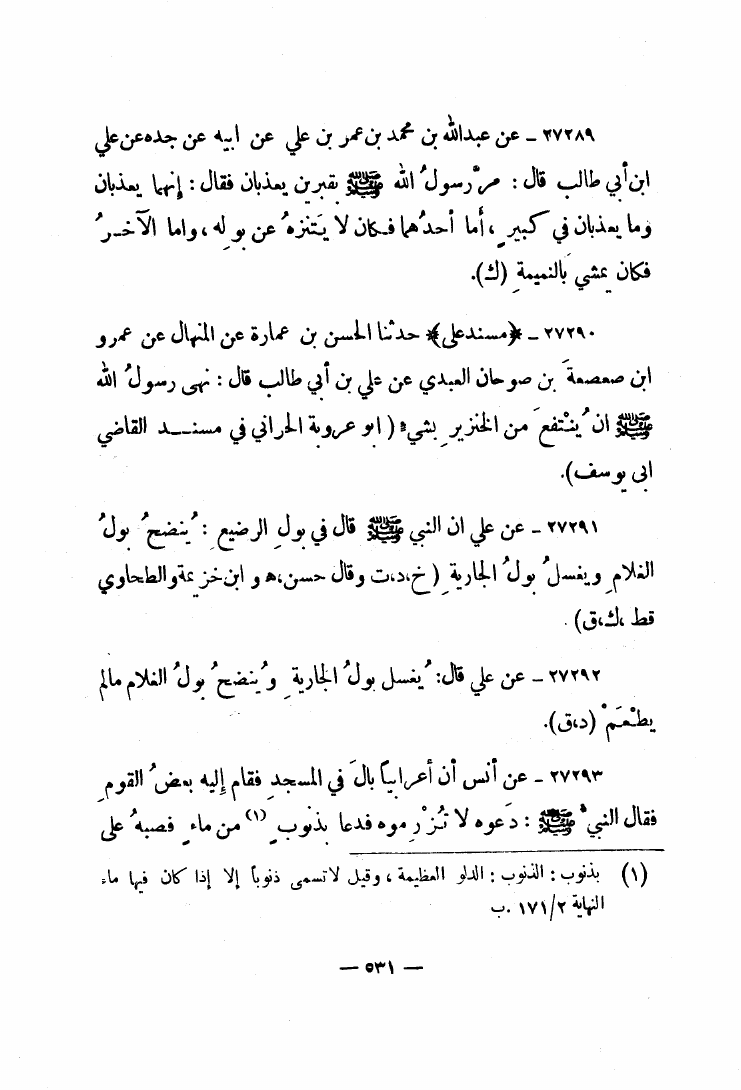 ٢٧٢٨٩ ـ عن عبدالله بن محمد بن عمر بن علي عن ابيه عن جده عن علي
ابن أبي طالب قال : مرَّ رسولُ الله ﷺ بقبرين يعذبان فقال : إنهما يعذبان
وما يعذبان في كبيرٍ ، أما أحدُهما فكان لا يَتنزهُ عن بولِه ، واما الآخرُ
فكان يمشي بالنميمةِ (ك).
٢٧٢٩٠ ـ ﴿مسند علي﴾ حدثنا الحسن بن عمارة عن المنهال عن عمرو
ابن صعصعةَ بن صوحان العبدي عن علي بن أبي طالب قال : نهى رسولُ الله
ﷺ ان يُنْتفعَ من الخنزيرِ بشيءٍ ( ابو عروبة الحراني في مسند القاضي
ابى يوسف).
٢٧٢٩١ ـ عن علي ان النبي ﷺ قال في بولِ الرضيعِ : يُنضحُ بولُ
الغلامِ ويغسلُ بولُ الجاريةِ ( خ،د،ت وقال حسن،ه و ابن خزيمة والطحاوي
قط ،ك،ق) .
٢٧٢٩٢ ـ عن علي قال: يُغسل بولُ الجاريةِ ويُنضحُ بولُ الغلام مالم
يطْعَمْ (د،ق).
٢٧٢٩٣ ـ عن أنس أن أعرابياً بالَ في المسجدِ فقام إليه بعضُ القومِ
فقال النبيُّ ﷺ : دَعوه لا تُزْرِموه فدعا بذنوبٍ (١) من ماءٍ فصبهُ على
(١) بذنوب : الذنوب : الدلو العظيمة ، وقيل لا تسمى ذنوباً إلا إذا كان فيها ماء
النهاية ١٧١/٢ .ب
— ٥٣١ —